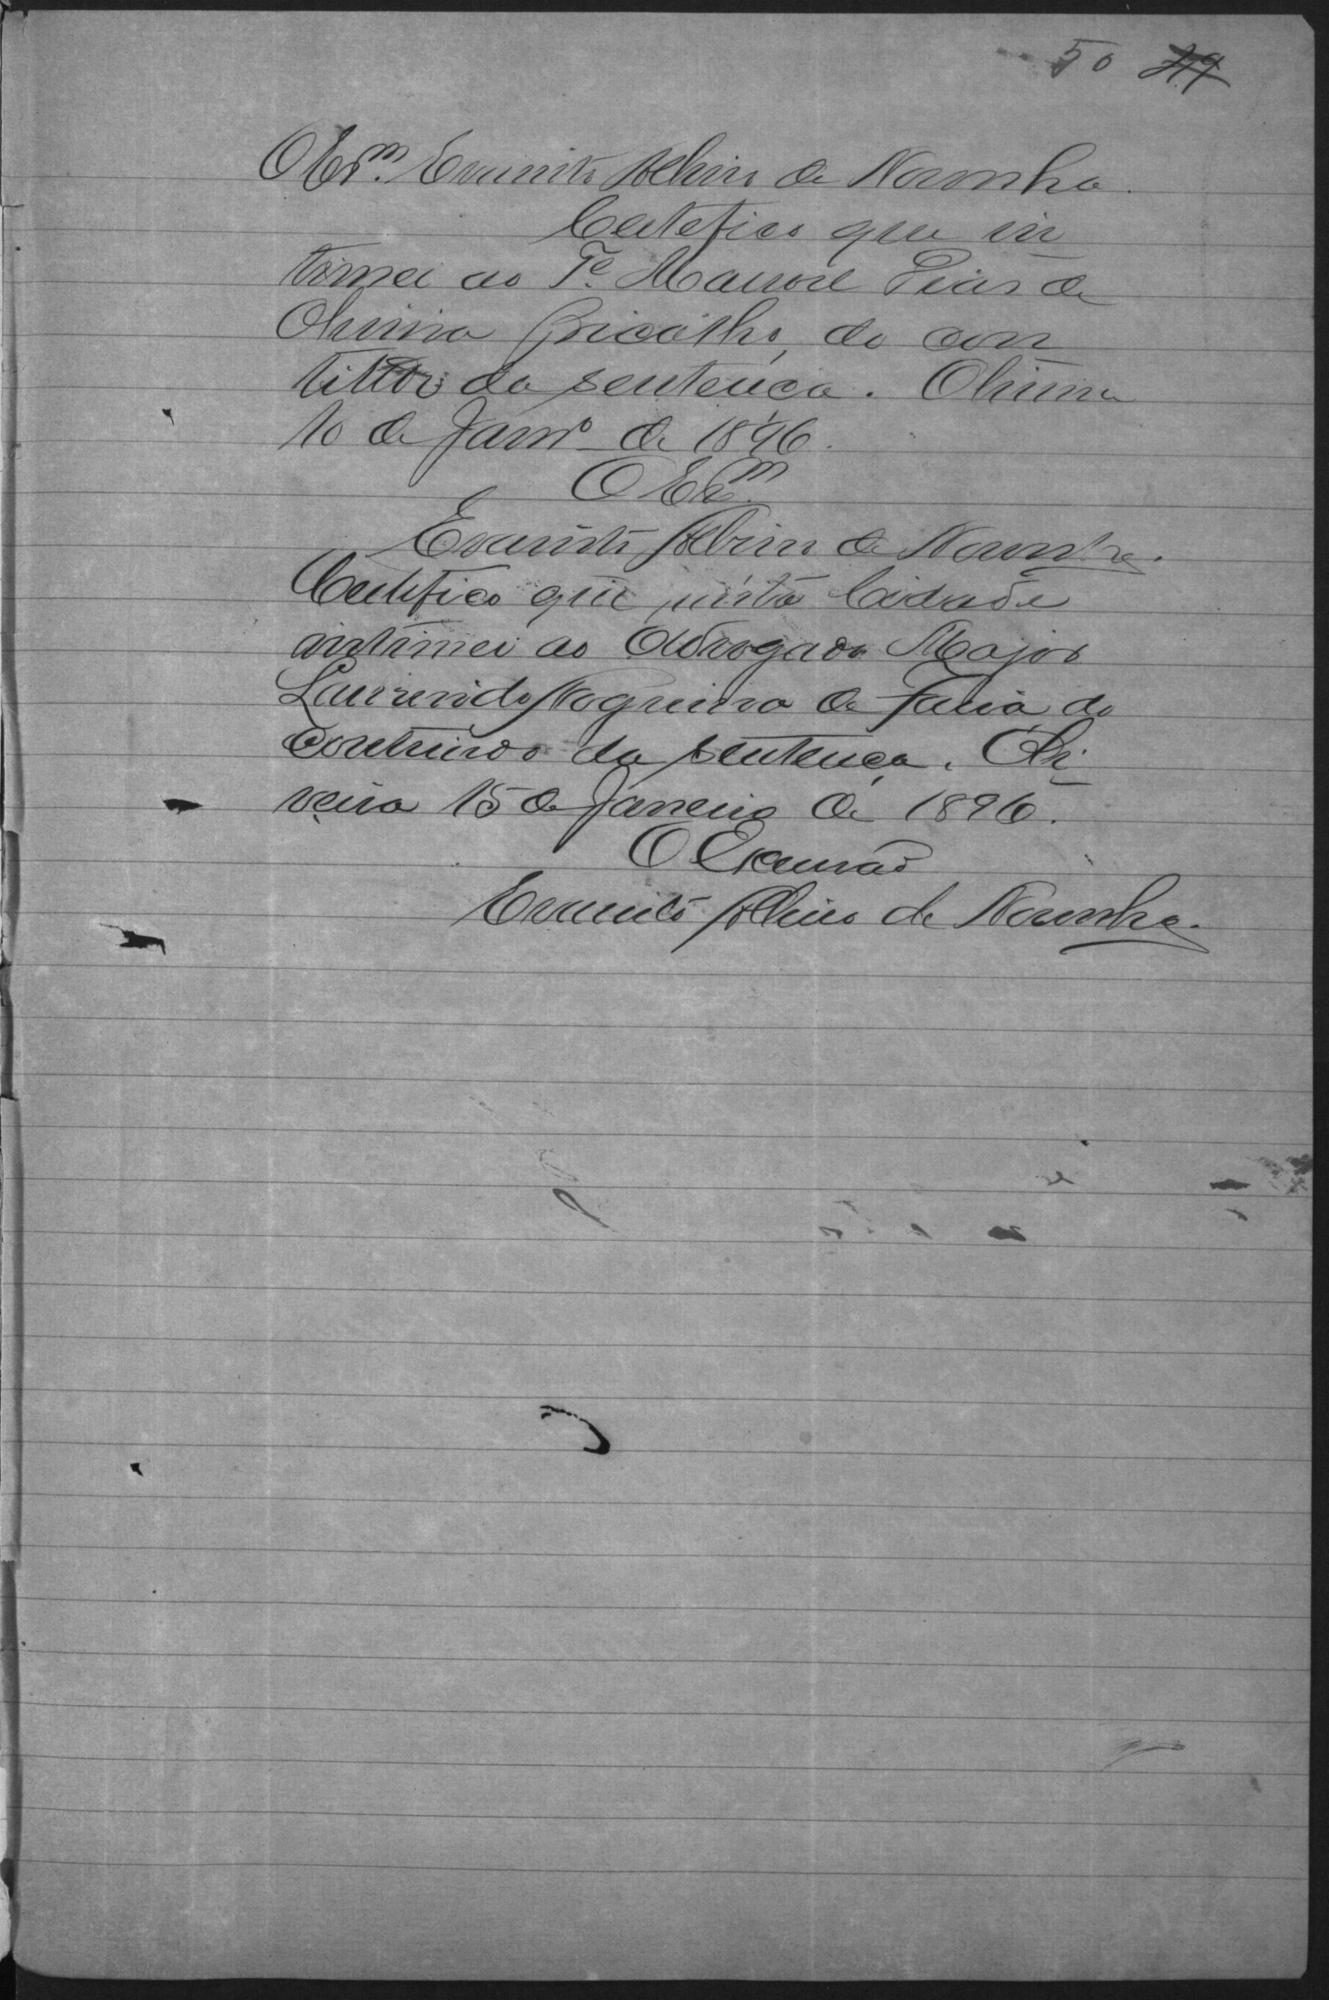 50
O Esm. Evaristo Albino de Noronha.
Certefico que in
timei ao Te. Manoel Dias de
Oliveira do con
da sentença. Oliveira
10 de Janro de 1896.
O Esm.
Evaristo Albino de Noronha.
Certifico que nésta Cidade
intimei ao Advogado Major
Laurindo Nogueira de Faria do
contheudo da sentença. Oli
veira 15 de Janeiro de 1896.
O Escrivão
Evaristo Albino de Noronha.